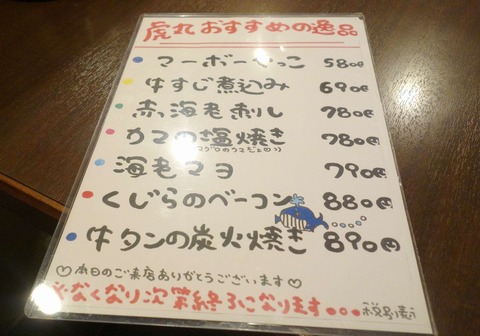 虎丸おすすめの逸品
マーボーやっこ 580円
牛すじ煮込み 690円
赤海老刺し 780円
カマの塩焼き 780円
海老マヨ 790円
くじらのベーコン 880円
牛タンの炭火焼き 890円
♡本日のご来店ありがとうございます♡
なくなり次第終了になります。。。 税別表